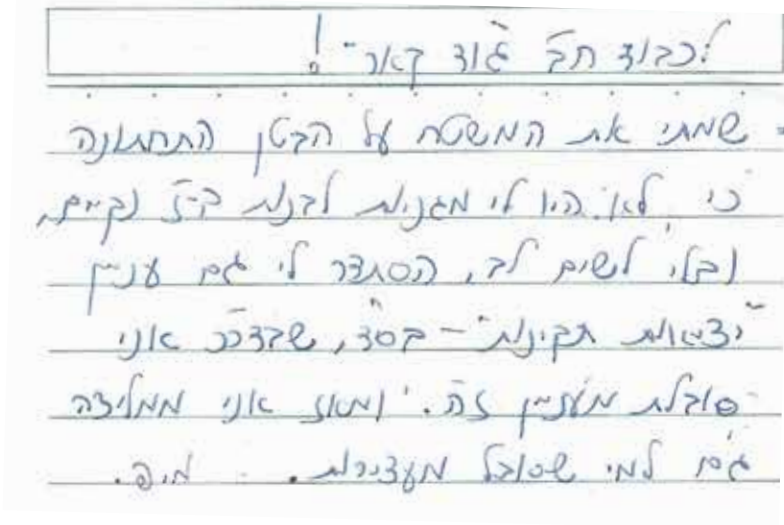 לכבוד חב' גוד קאר !
שמתי את המשטח על הבטן התחתונה
כי לא היו לי מגבות לבנות נקיים,
ובלי לשים לב, הסתדר לי גם עניין
"יציאות תקינות" – בס"ד, שבדר"כ אני
סובלת מעניין זה. ומאז אני ממליצה
גם למי שסובל מעצירות. מ.פ.